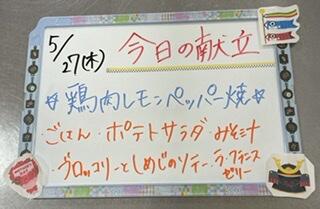 5/27(木) 今日の献立
☆鶏肉レモンペッパー焼☆
・ごはん・ポテトサラダ・みそ汁
・ブロッコリーとしめじのソテー・ラ・フランスゼリー